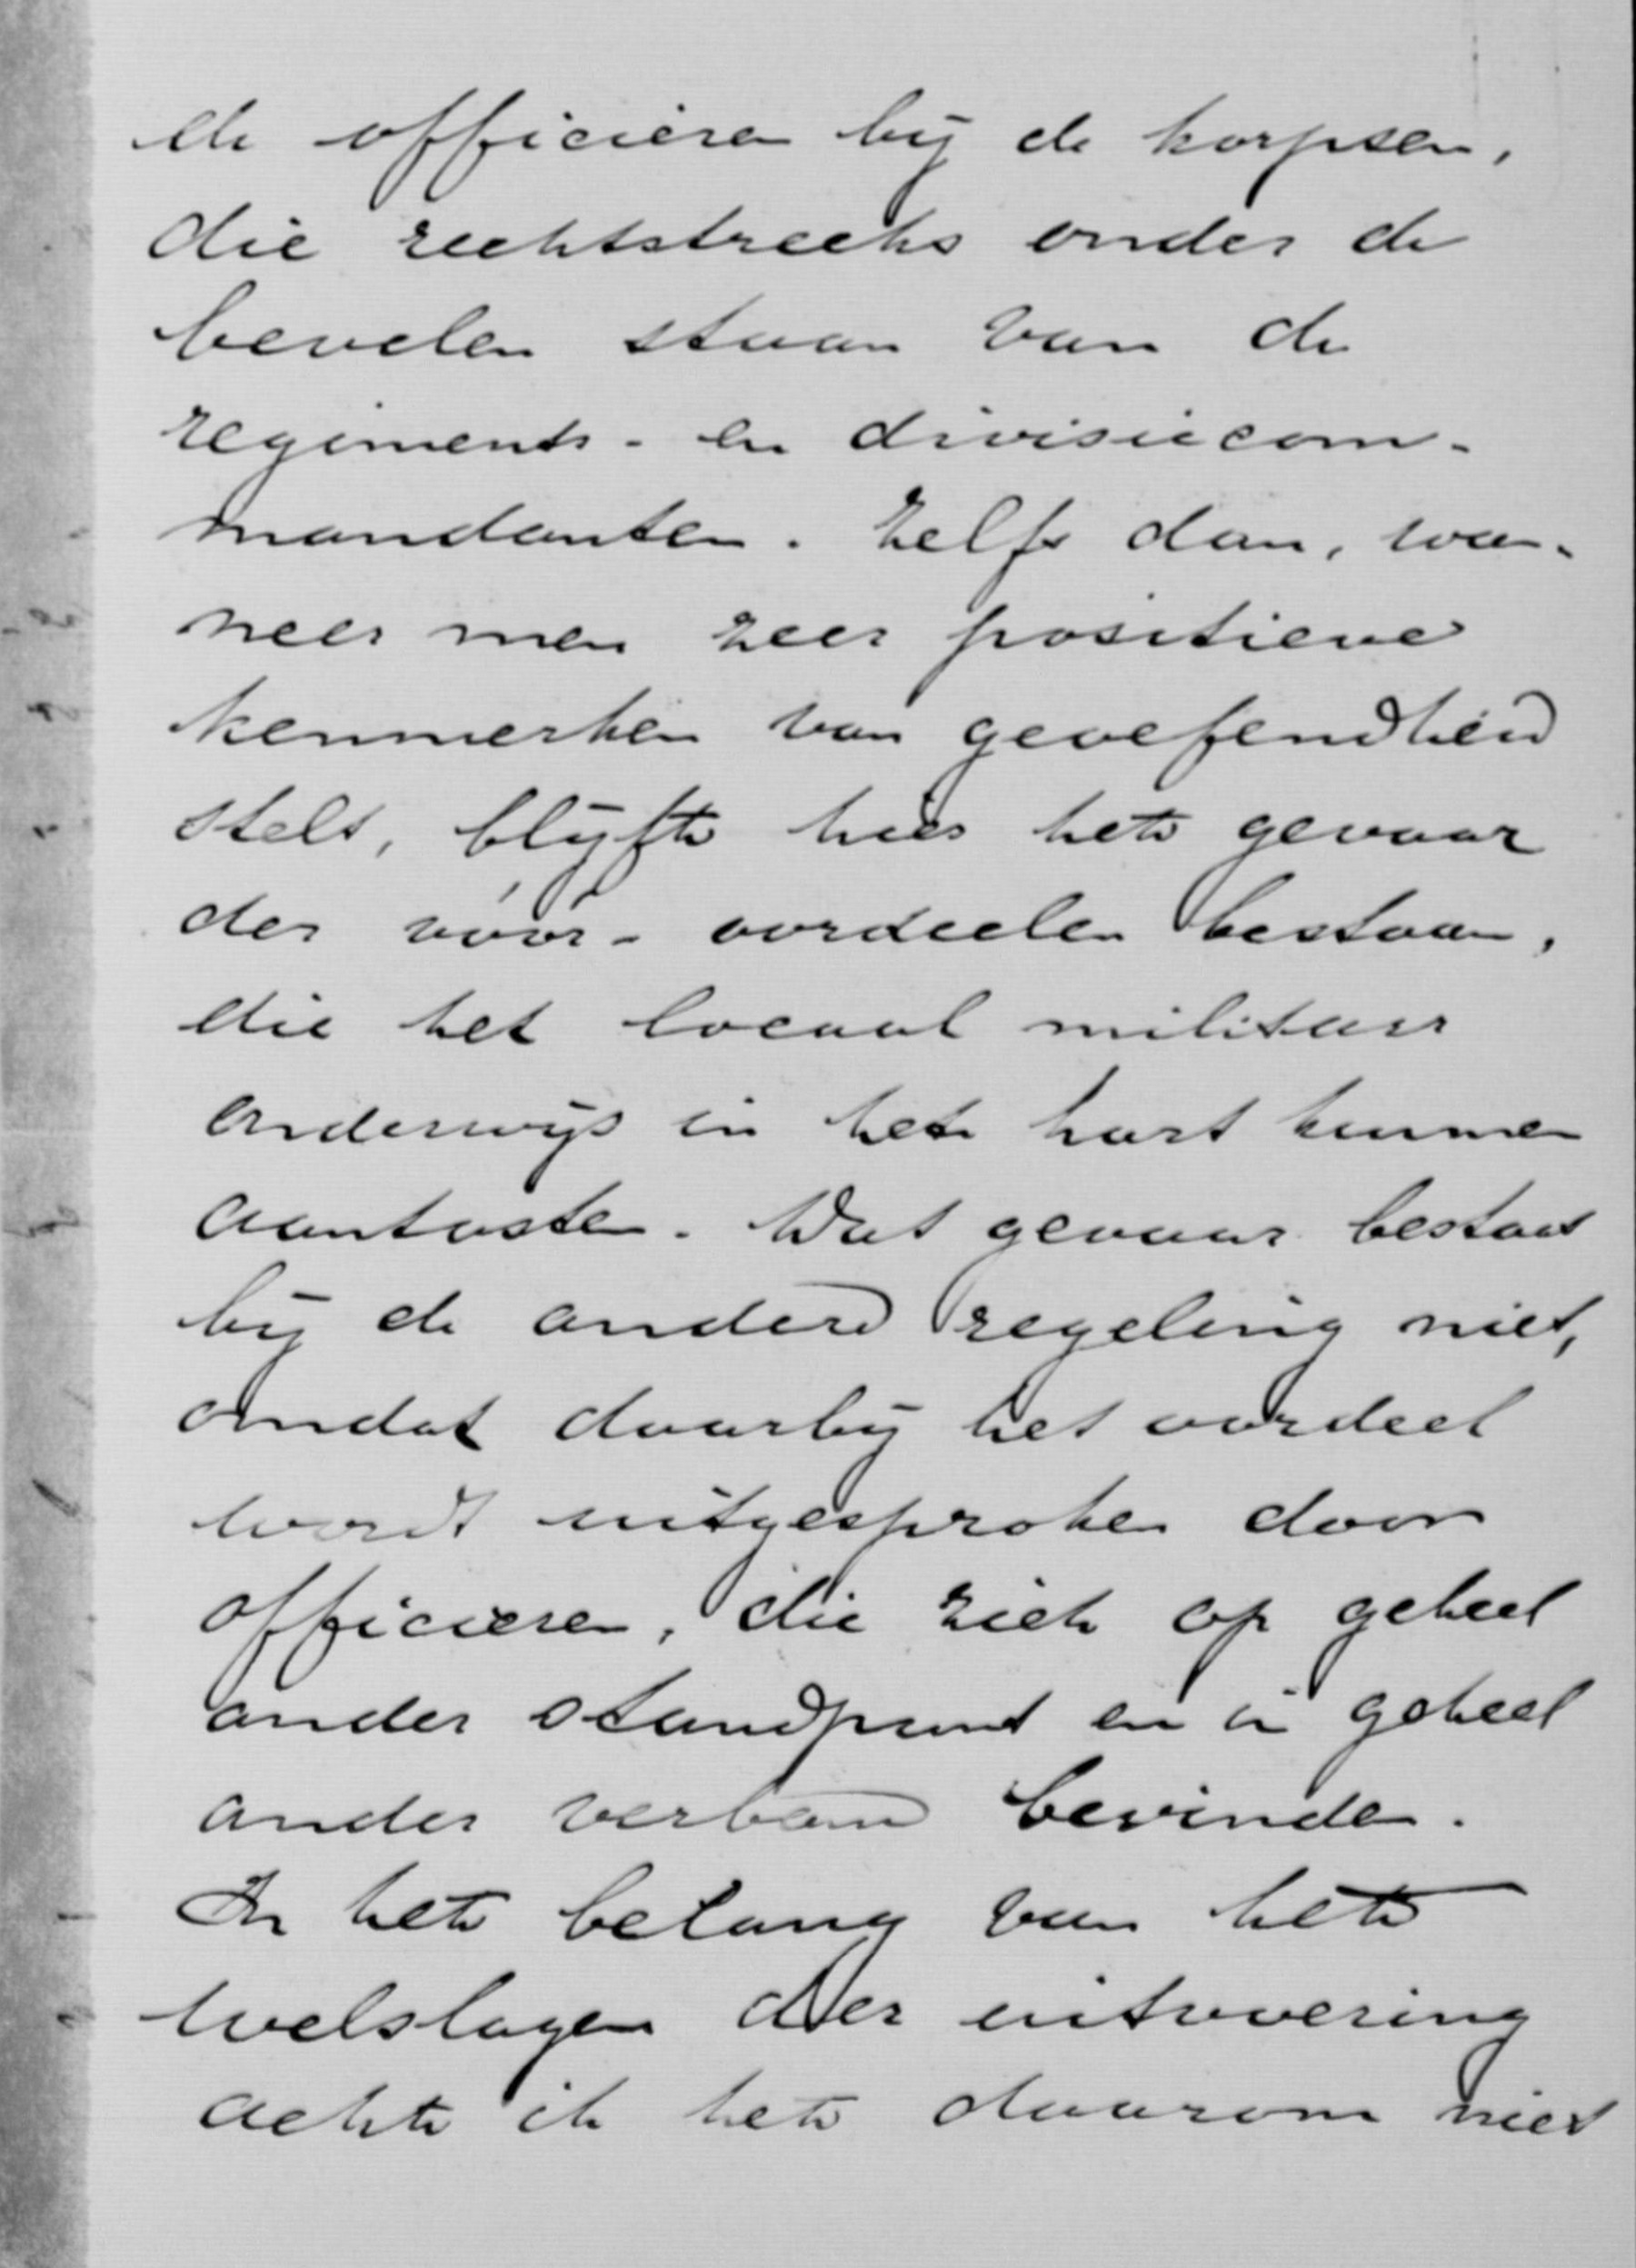 de officieren bij de korpsen,
die rechtstreeks onder de
bevelen staan van de
regiments- en divisiecom-
mandanten. Zelfs dan, wan-
neer men zeer positieve
kenmerken van geoefendheid
stelt, blijft hier het gevaar
der vóór-oordeelen bestaan,
die het locaal militair
onderwijs in het hart kunnen
aantasten. Dat gevaar bestaat
bij de andere regeling niet,
omdat daarbij het oordeel
wordt uitgesproken door
officieren, die zich op geheel
ander standpunt en in geheel
ander verband bevinden.
In het belang van het
welslagen der uitvoering
acht ik het daarom niet